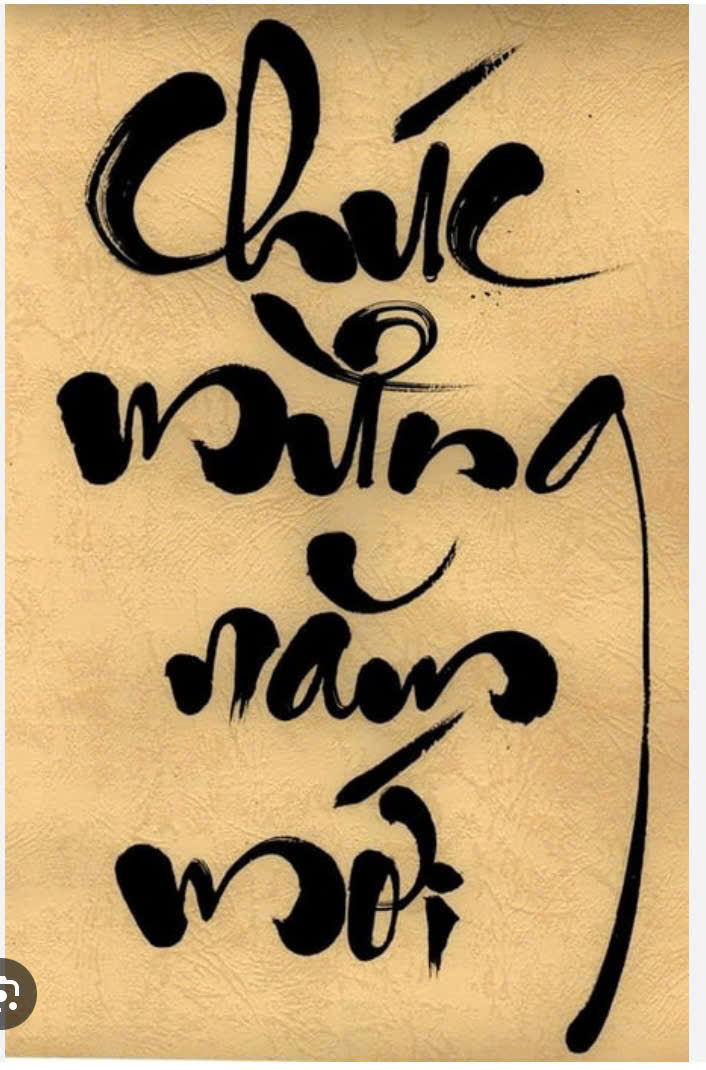 Chúc
mừng
năm
mới